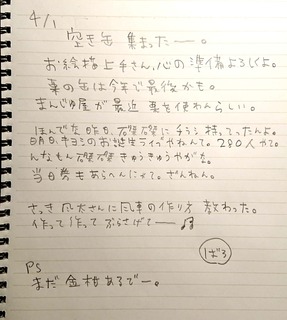 4/1
空き缶 集まったー。
お絵描上手さん、心の準備よろしくよ。
栗の缶は今年で最後かも。
まんじゅ屋が最近 栗を使わんらしい。
ほんでな昨日、礫礫にチラシ持ってったんよ。
明日、キヨシのお誕生ライブやねんて。280人やて。
んなもん礫礫きゅうきゅうやがな。
当日券もあらへんにゃて。ざんねん。
さっき風太さんに風車の作り方 教わった。
作って作ってぶらさげてー♫
ばる
PS
まだ金柑あるでー。